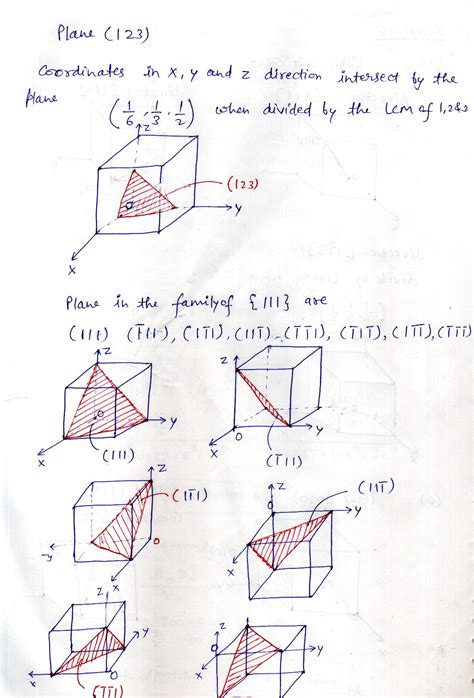 Plane (123)
Coordinates in x, y and z direction intersect by the
plane
(1/6, 1/3, 1/2) when divided by the LCM of 1,2&3
z
(123)
O
y
x
Plane in the family of {111} are
(111) (1̅11), (11̅1), (111̅), (1̅1̅1), (1̅11̅), (11̅1̅), (1̅1̅1̅)
z z
O
y y
x O x
(111) (1̅11)
z
(11̅1) (111̅)
z
O y
-y O
x x
z z
y y
O
x O
(1̅1̅1) x